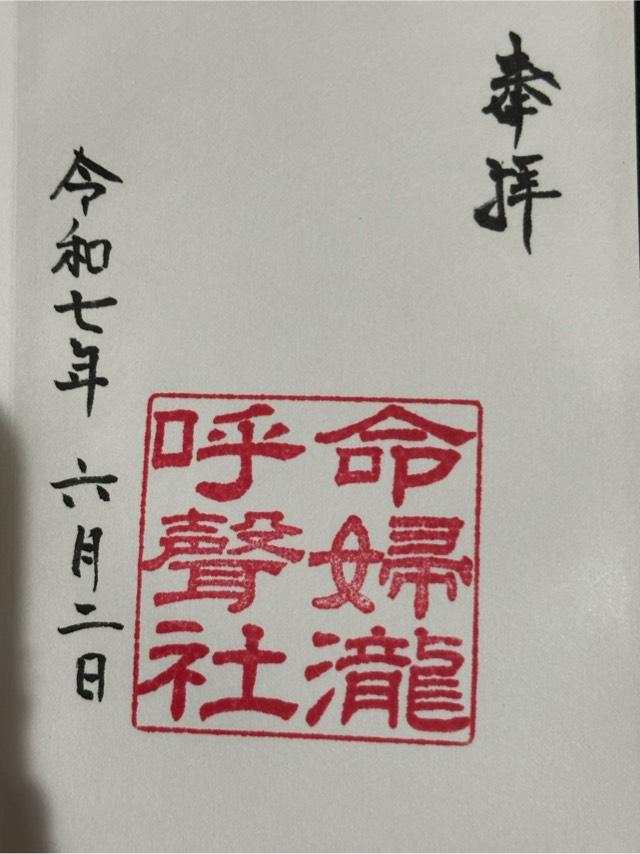 奉拝
命婦瀧
呼聲社
令和七年 六月二日